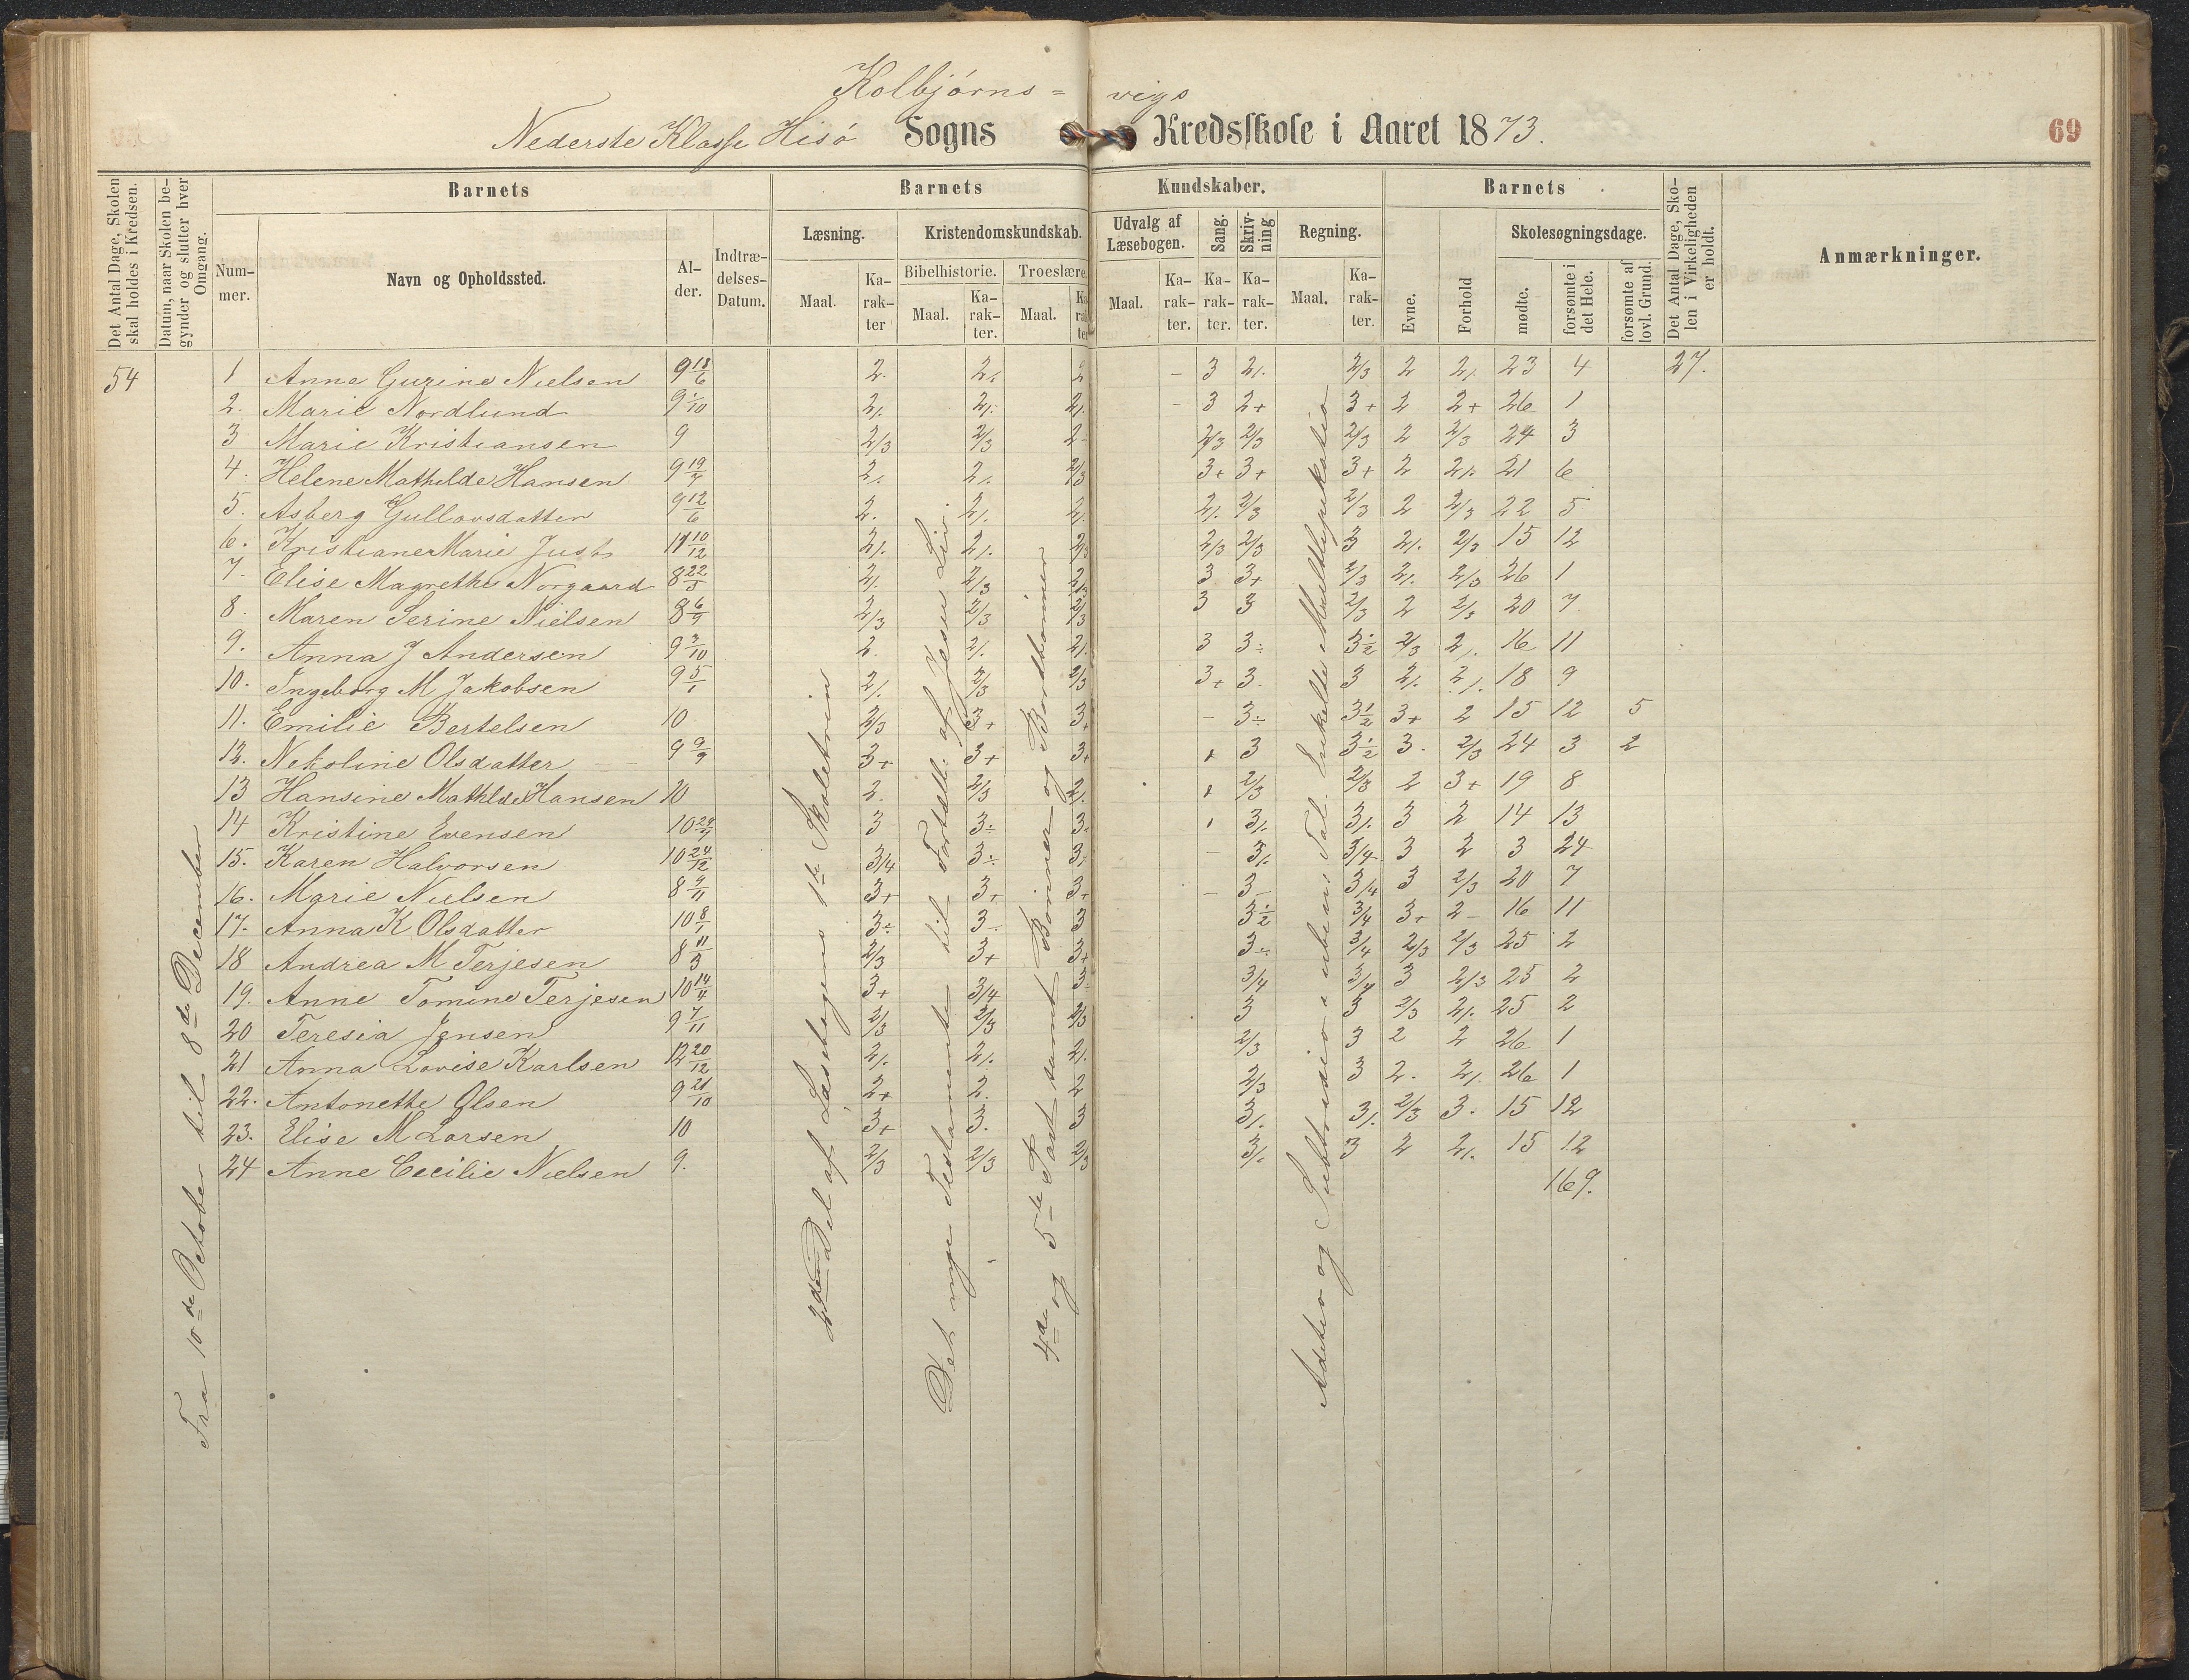 Kolbjørns= vigs
Nederste Klasse Hisø Sogns Kredsskole i Aaret 1873.
69
Det Antal Dage, Skolen skal holdes i Kredsen.
Datum, naar Skolen begynder og slutter hver Omgang.
Barnets
Barnets
Kundskaber.
Barnets
Det Antal Dage, Skolen i Virkeligheden er holdt.
Anmærkninger.
Num-mer.
Navn og Opholdssted.
Al-der.
Indtræ-delses-Datum.
Læsning.
Kristendomskundskab.
Udvalg af Læsebogen.
Sang.
Skriv-ning
Regning.
Evne.
Forhold
Skolesøgningsdage.
Bibelhistorie.
Troeslære.
Maal.
Ka-rak-ter
Maal.
Ka-rak-ter.
Maal.
Ka-rak-ter
Maal.
Ka-rak-ter.
Ka-rak-ter.
Ka-rak-ter.
Maal.
Ka-rak-ter.
mødte.
forsømte i det Hele.
forsømte af lovl. Grund.
54 1 Anne Gurine Nielsen 9 18/6 2. 2/. 2 - 3 2/. 2/3 2 2/. 23 4 27.
2. Marie Nordlund 9 1/10 2/. 2/. 2/. - 3 2+ 3+ 2 2+ 26 1
3 Marie Kristiansen 9 2/3 2/3 2- 2/3 2/3 2/3 2 2/3 24 3
4. Helene Mathilde Hansen 9 19/7 2/. 2/. 2/3 3+ 3+ 3+ 2 2/. 21 6
5. Asberg Gullovsdatter 9 12/6 2. 2/. 2/. 2/. 2/3 2/3 2 2/3 22 5
6. Kristiane Marie Just 11 10/12 2/. 2/. 2/3 2/3 2/3 3 2/. 2/3 15 12
7. Elise Magrethe Norgaard 8 22/5 2/. 2/3 2/3 3 3+ 2/3 2/. 2/3 26 1
8. Maren Serine Nielsen 8 6/9 2/3 2/3 2/3 3 3 2/3 2 2/3 20 7
9. Anna J Andersen 9 3/10 2. 2/. 2/. 3 3÷ 3½ 2/3 2/. 16 11
10. Ingeborg M Jakobsen 9 5/1 2/. 2/3 2/3 3+ 3. 3 2/. 2/. 18 9
11. Emilie Bertelsen 10 2/3 3+ 3+ - 3÷ 3½ 3+ 2 15 12 5
12. Nekoline Olsdatter 9 9/9 3+ 3+ 3+ 3 3½ 3. 2/3 24 3 2
13 Hansine Mathlde Hansen 10 2. 2/3 2/. 2/3 2/3 2 3+ 19 8
14 Kristine Evensen 10 29/7 3 3÷ 3÷ 3/. 3/. 3 2 14 13
15. Karen Halvorsen 10 24/12 3/4 3÷ 3/. - 3/. 3/4 3 2 3 24
16. Marie Nielsen 8 9/11 3+ 3+ 3+ - 3- 3/4 3 2/3 20 7
17. Anna K Olsdatter 10 8/1 3÷ 3- 3 3½ 3/4 3+ 2- 16 11
18 Andrea M Terjesen 8 11/3 2/3 3+ 3+ 3÷ 3/4 2/3 2/3 25 2
19. Anne Tomine Terjesen 10 14/4 3+ 3/4 3÷ 3/4 3/4 3 2/3 25 2
20 Teresia Jensen 9 7/11 2/3 2/3 2/3 3 3 2/3 2/. 25 2
21 Anna Lovise Karlsen 12 20/12 2/. 2/. 2/. 2/3 3 2 2 26 1
22. Antonette Olsen 9 21/10 2+ 2. 2 2/3 3 2. 2/. 26 1
23. Elise M Larsen 10 3+ 3. 3 3/. 3/. 2/3 3. 15 12
24 Anne Cecilie Nielsen 9. 2/3 2/3 2/3 3/. 3 2 2/. 15 12
169.
Fra 10de October til 8de December
Del af Læsebogens 1te Skoletrin
Det nye Testamente til Fortæll. af Jesu Liv.
4de og 5te Part samt Bønner og Bordbønner
Aditio og Subtraxio i ubenv. Tal. Enkelte Multlipikatio